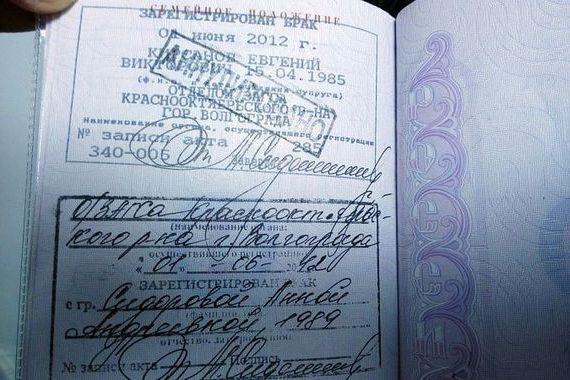 СЕМЕЙНОЕ ПОЛОЖЕНИЕ
ЗАРЕГИСТРИРОВАН БРАК
01 июня 2012 г.
ЕВГЕНИЙ
ВИКТОРОВИЧ 15.04.1985
ОТДЕЛОМ ЗАГСА
КРАСНООКТЯБРЬСКОГО Р-НА
ГОР. ВОЛГОГРАДА
Наименование органа, осуществившего регистрацию
№ записи акта 285
340-006
Заверил
О/ЗАГСа Краснооктябрьс-
кого р-на г. Волгограда
(наименование органа,
осуществившего регистрацию)
"01" 06 2012
ЗАРЕГИСТРИРОВАН БРАК
с гр. Сидоровой Анной
Андреевной, 1989
отчество, дата рождения
№ записи акта Подпись